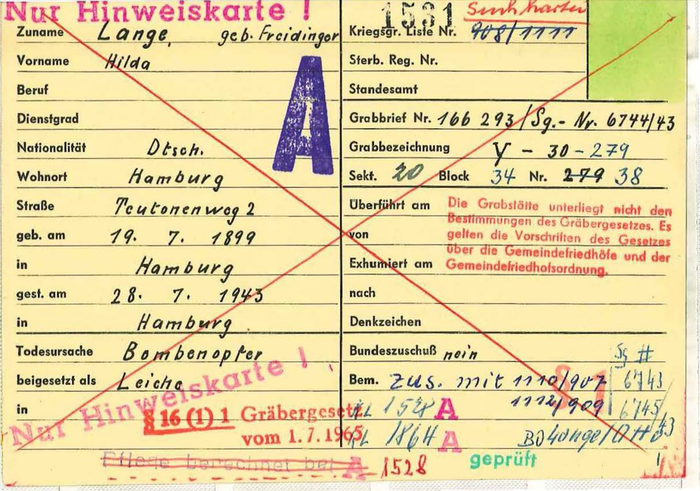 Nur Hinweiskarte !
1531 Suchkartei
Zuname Lange, geb. Freidinger
Vorname Hilda
Beruf
Dienstgrad
Nationalität Dtsch.
Wohnort Hamburg
Straße Teutonenweg 2
geb. am 19. 7. 1899
in Hamburg
gest. am 28. 7. 1943
in Hamburg
Todesursache Bombenopfer
beigesetzt als Leiche
in
A
Kriegsgr. Liste Nr. 908/1111
Sterb. Reg. Nr.
Standesamt
Grabbrief Nr. 166 293/Sg.- Nr. 6744/43
Grabbezeichnung Y - 30 - 279
Sekt. 20 Block 34 Nr. 279 38
Überführt am
von
Exhumiert am
nach
Denkzeichen
Die Grabstätte unterliegt nicht den
Bestimmungen des Gräbergesetzes. Es
gelten die Vorschriften des Gesetzes
über die Gemeindefriedhöfe und der
Gemeindefriedhofsordnung.
Bundeszuschuß nein
Bem. Zus. mit 1110/907
1112/909
6743
6745/43
1528 A
1864 A
Nur Hinweiskarte !
§ 16 (1) 1 Gräbergesetz
vom 1.7.1965
Pflege berechnet bei A 1528
geprüft